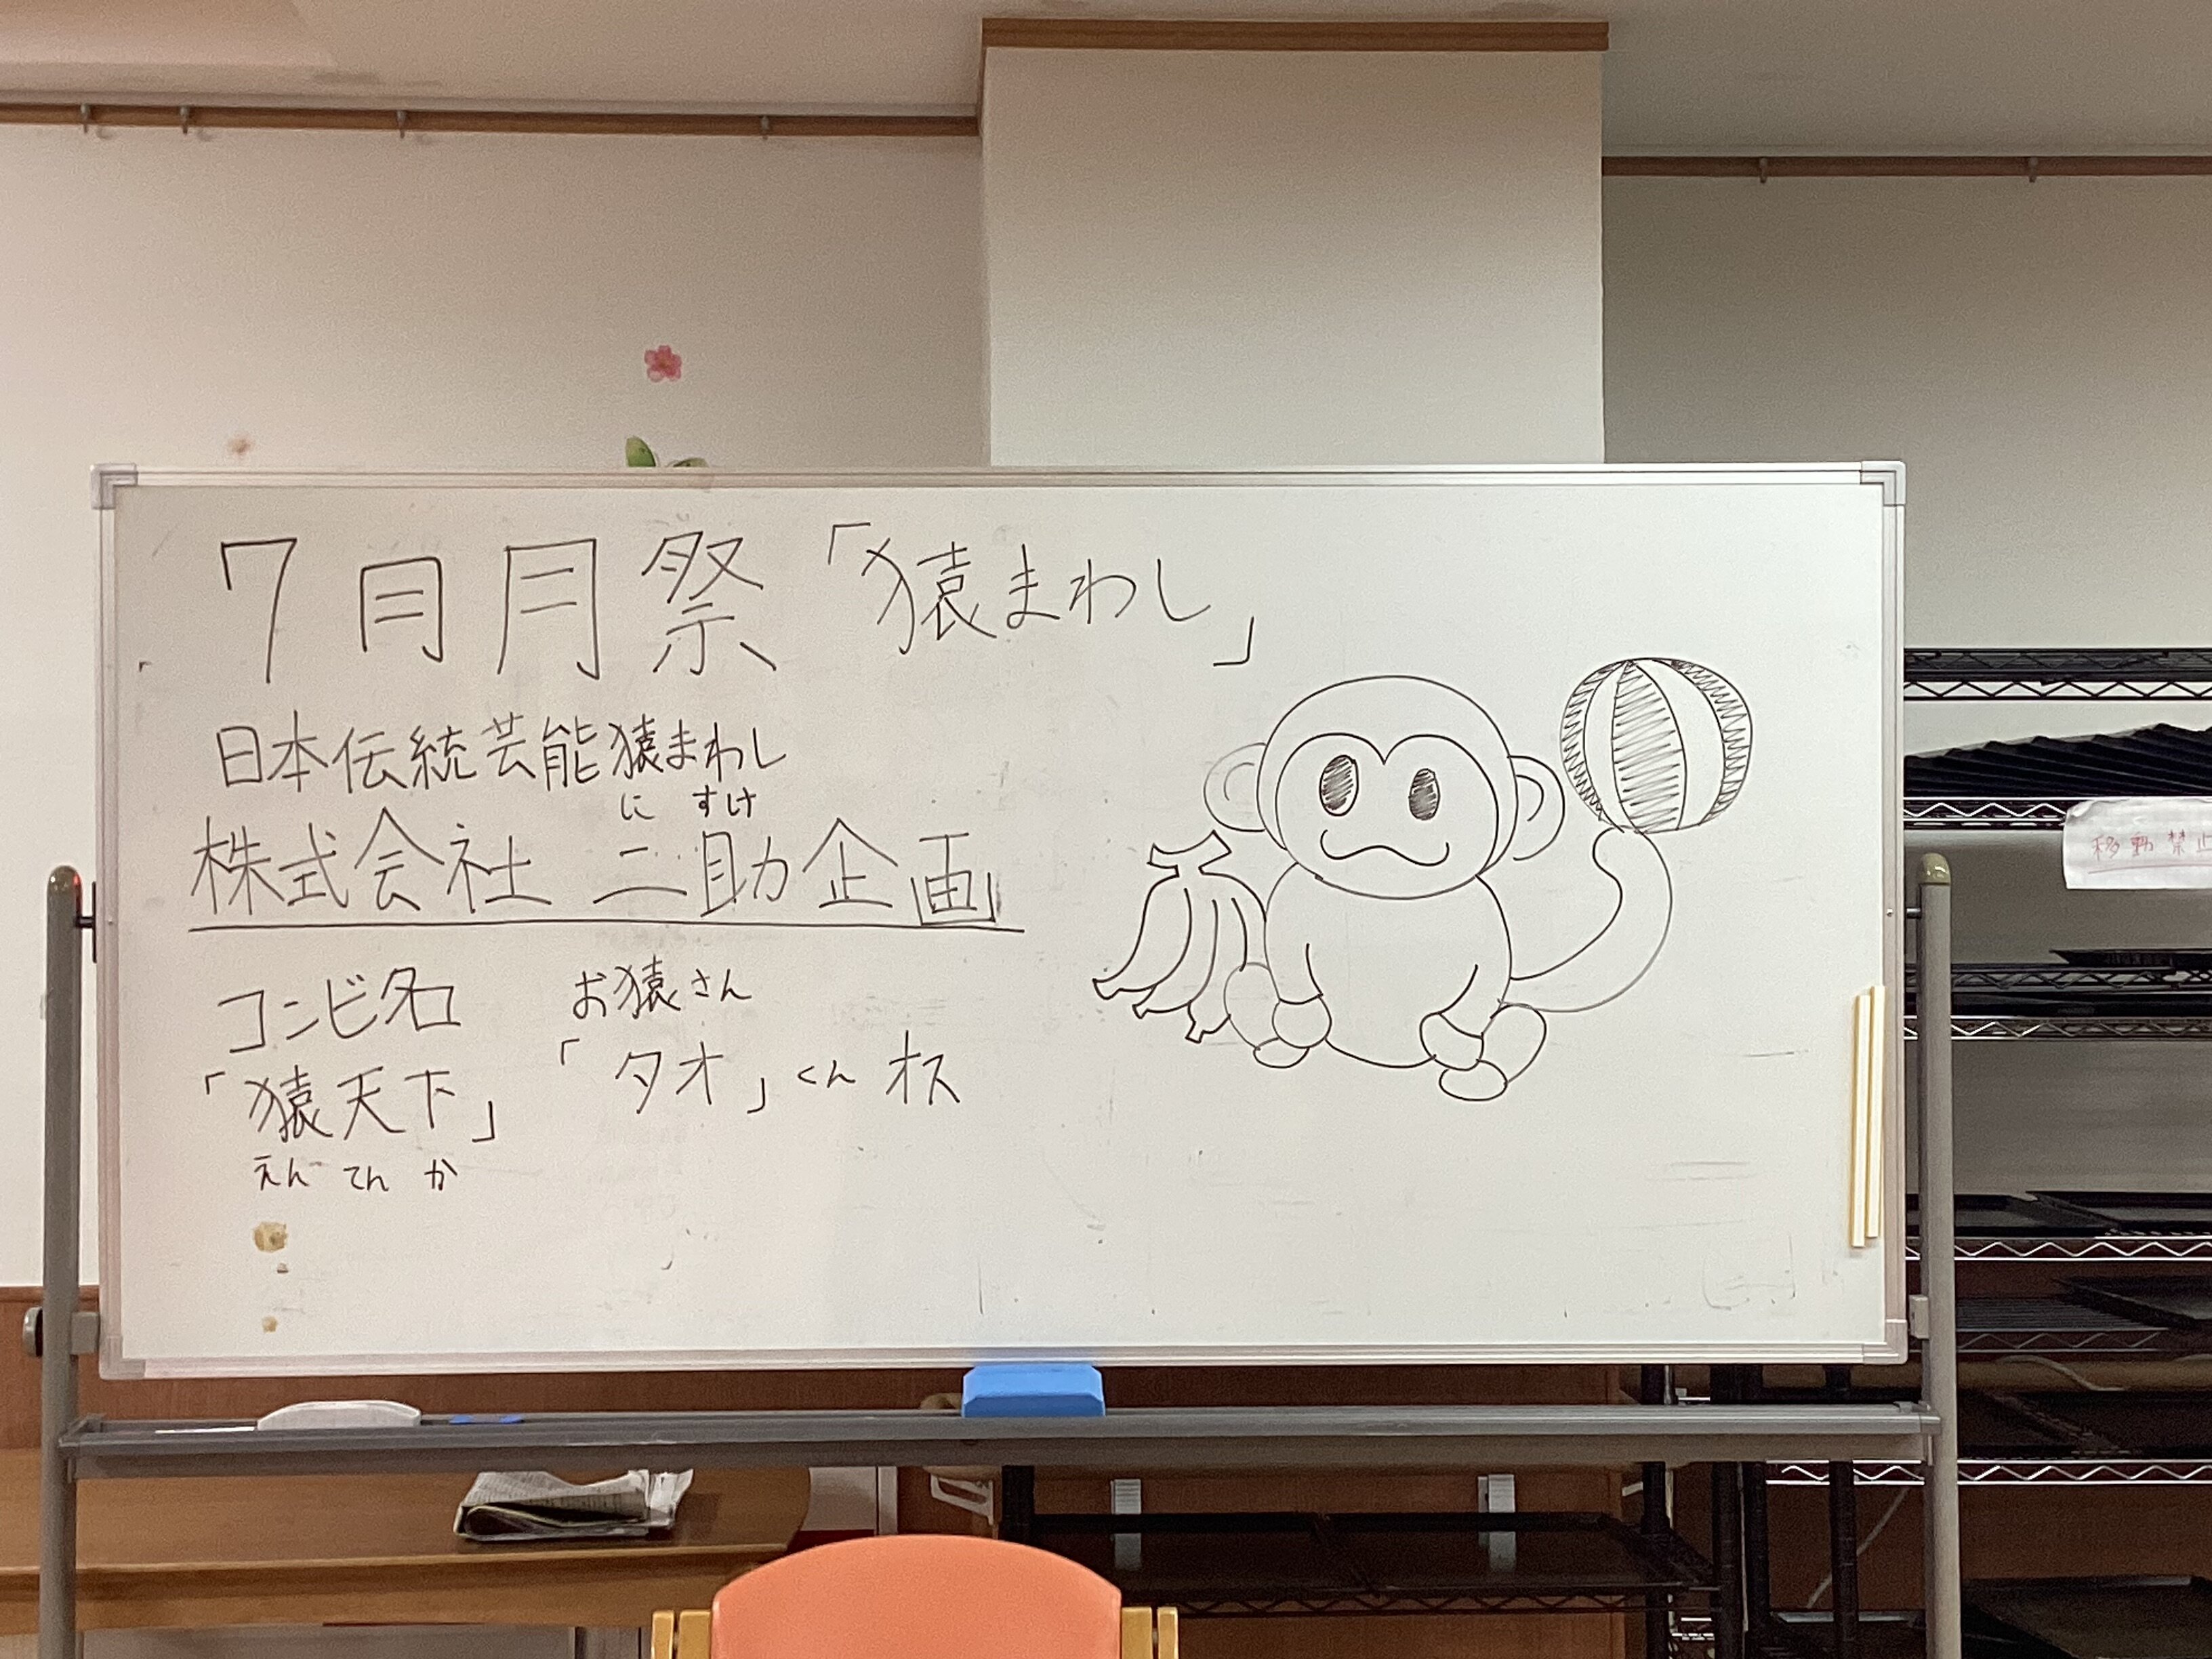 7月月祭「猿まわし」
日本伝統芸能猿まわし
にすけ
株式会社 二助企画
コンビ名
「猿天下」
えんてんか
お猿さん
「タオ」くん オス
移動禁止